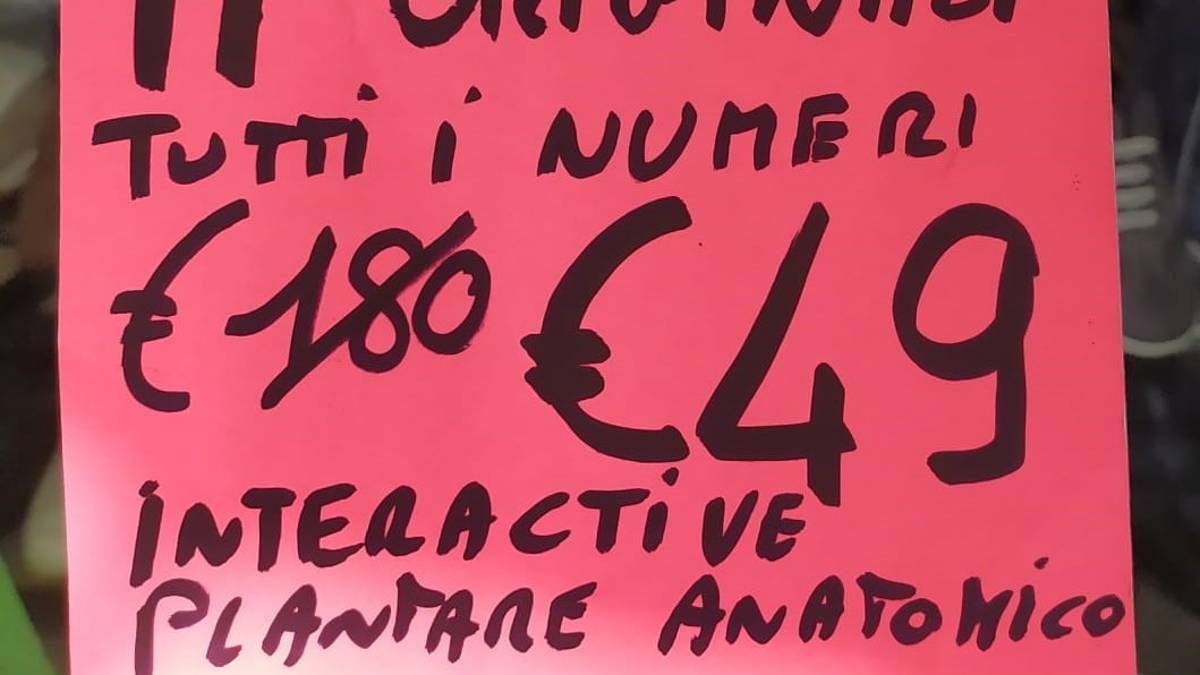 ORIGINALI
TUTTI I NUMERI
€ 180 € 49
INTERACTIVE
PLANTARE ANATOMICO